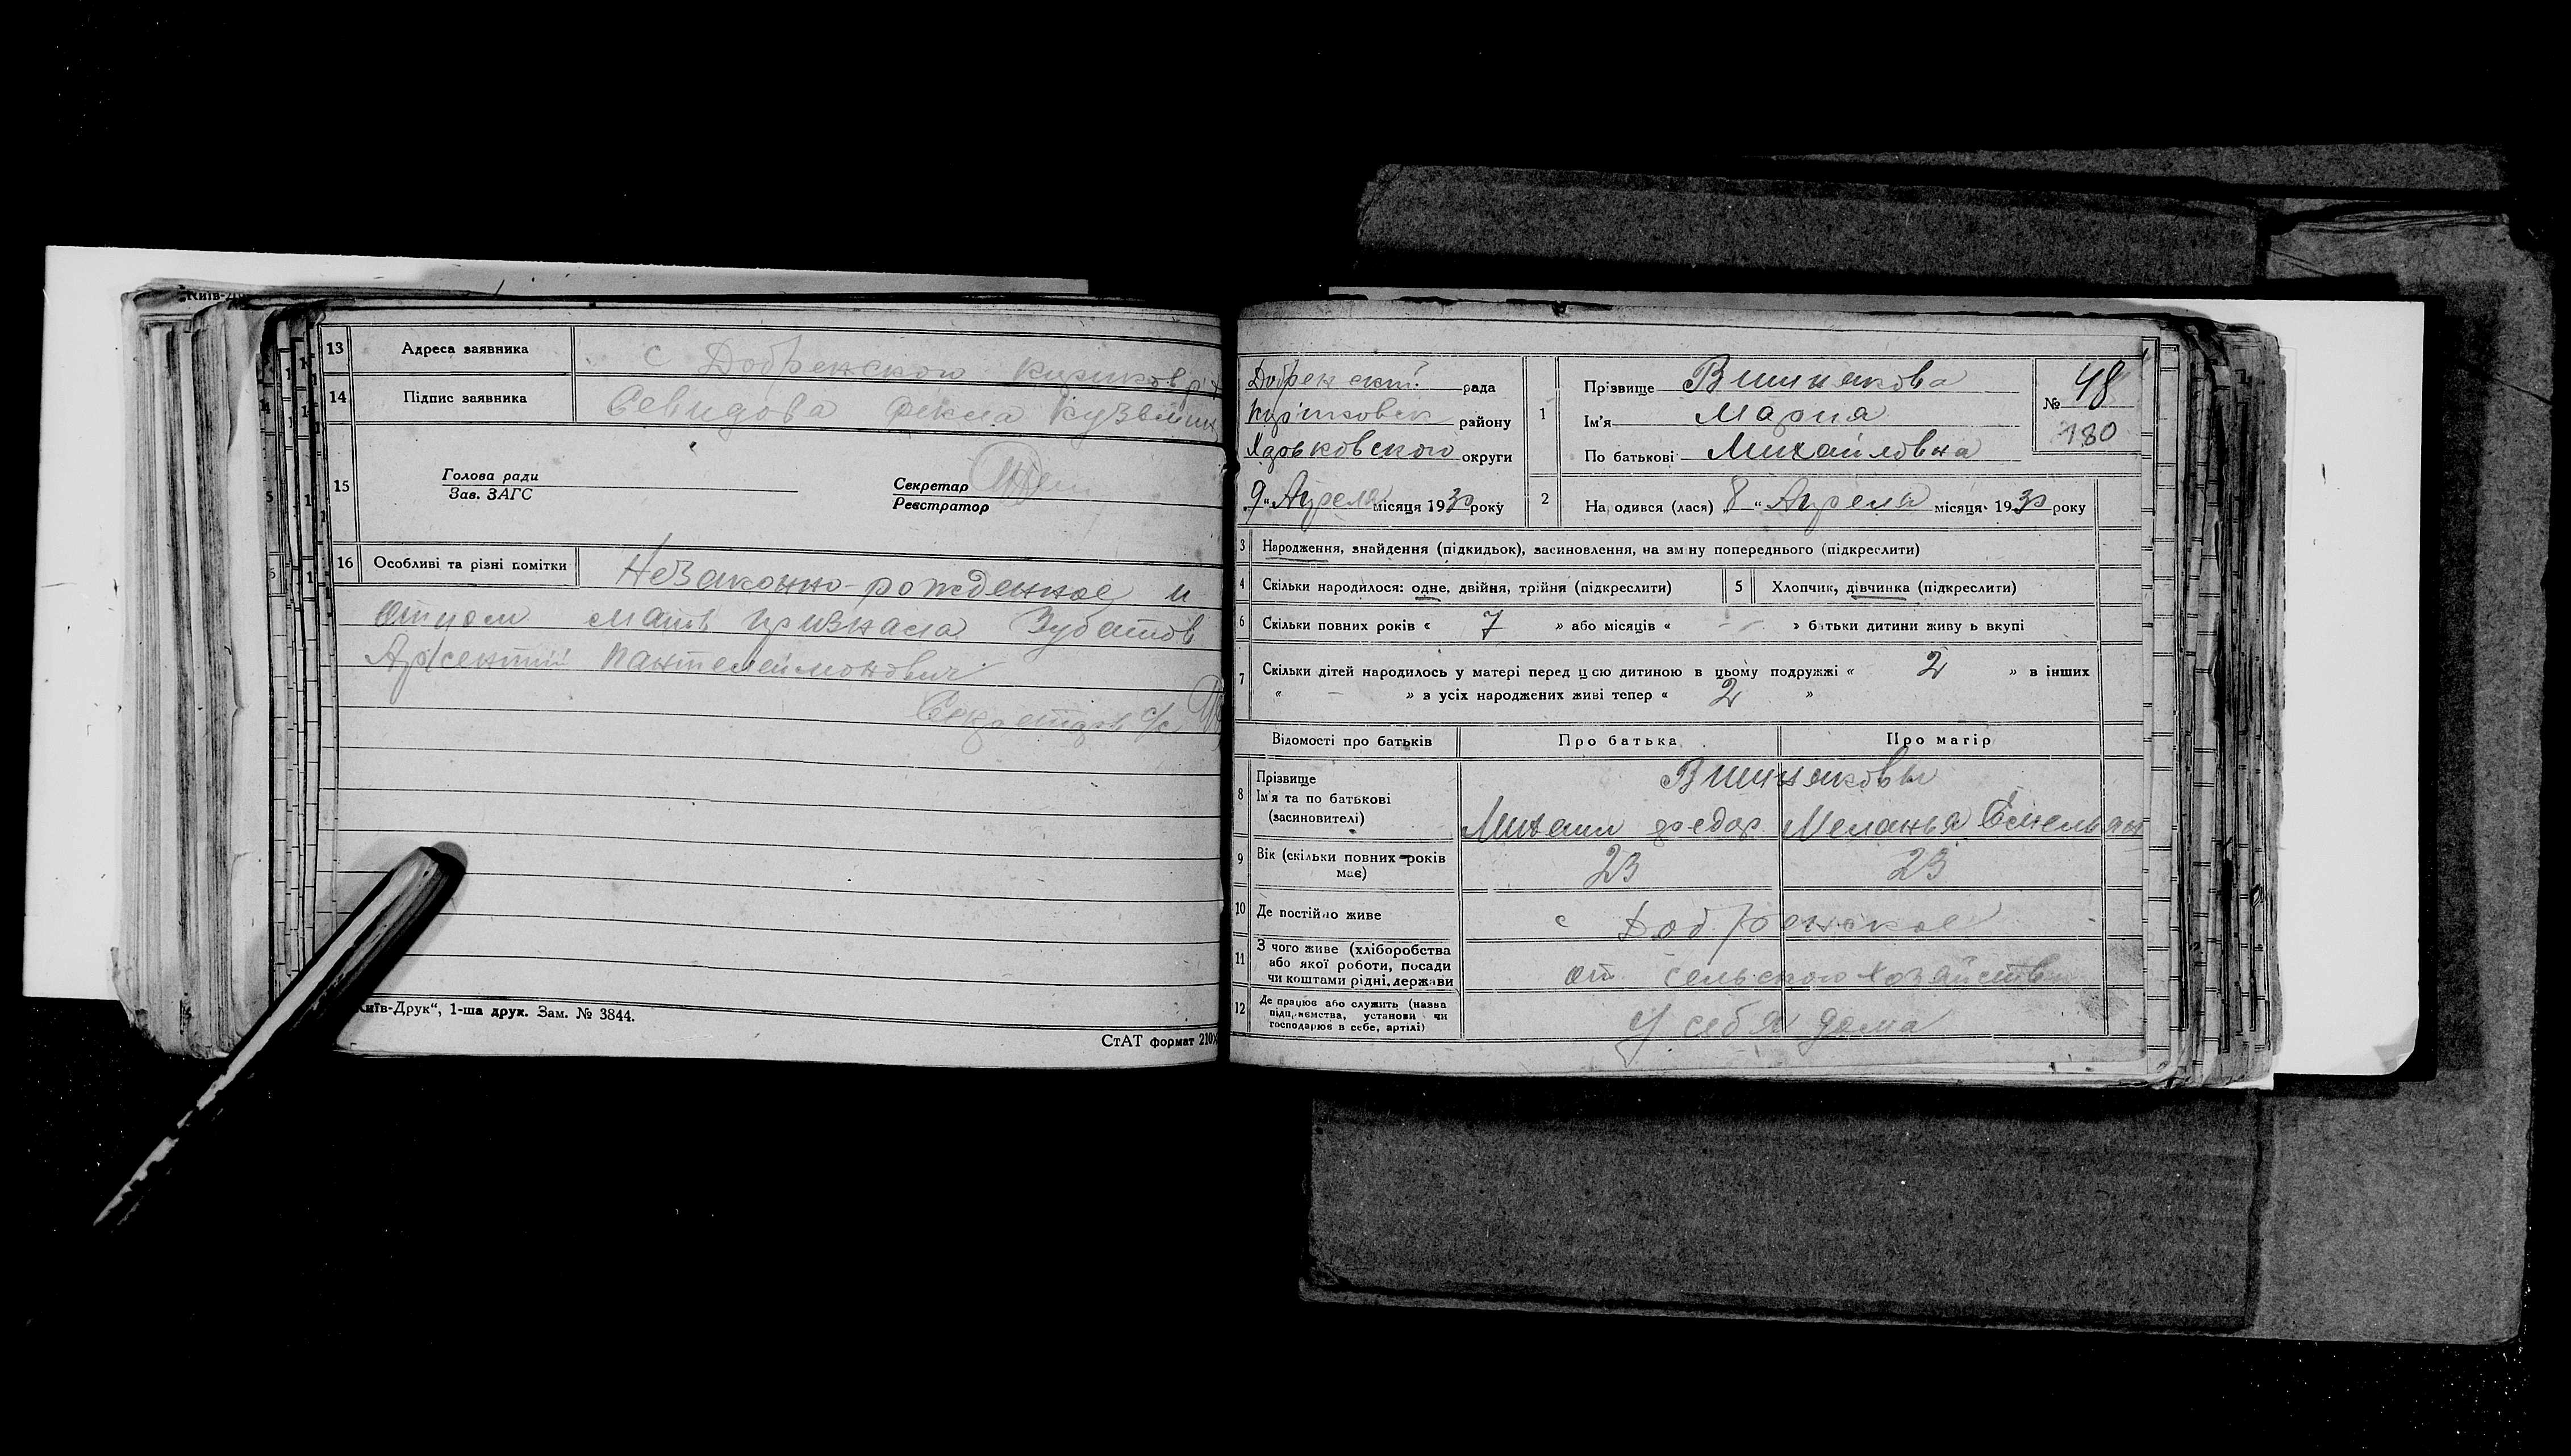 Київ-Др
13 Адреса заявника с Добренского
14 Підпис заявника Фекла Кузьмин
15 Голова ради
Зав. ЗАГС
Секретар
Реєстратор
16 Особливі та різні помітки Незаконно-рожденное и
отцом мать признала Зубатов
Арсентий Пантелеймонович
Секретарь с/с
Київ-Друк“, 1-ша друк. Зам. № 3844.
СтАТ формат 210х
Добренский рада
району
округи
„9“ Апреля місяця 1930 року
1 Прізвище Вишнякова
Ім'я Мария
По батькові Михайловна
№ 48
180
2 Народився (лася) „8“ Апреля місяця 1930 року
3 Народження, знайдення (підкидьок), засиновлення, на зміну попереднього (підкреслити)
4 Скільки народилося: одне, двійня, трійня (підкреслити) 5 Хлопчик, дівчинка (підкреслити)
6 Скільки повних років « 7 » або місяців « - » батьки дитини живуть вкупі
7 Скільки дітей народилось у матері перед цією дитиною в цьому подружжі « 2 » в інших
« – » з усіх народжених живі тепер « 2 »
Відомості про батьків Про батька Про матір
8 Прізвище
Ім'я та по батькові
(засиновителі)
Вишняковы
Михаил Федор Меланья Емельян
9 Вік (скільки повних років має) 23 23
10 Де постійно живе с Добренское
11 З чого живе (хліборобства
або якої роботи, посади
чи коштами рідні, держави
от сельского хозяйства
12 Де працює або служить (назва
підприємства, установи чи
господарює в себе, артілі)
У себя дома